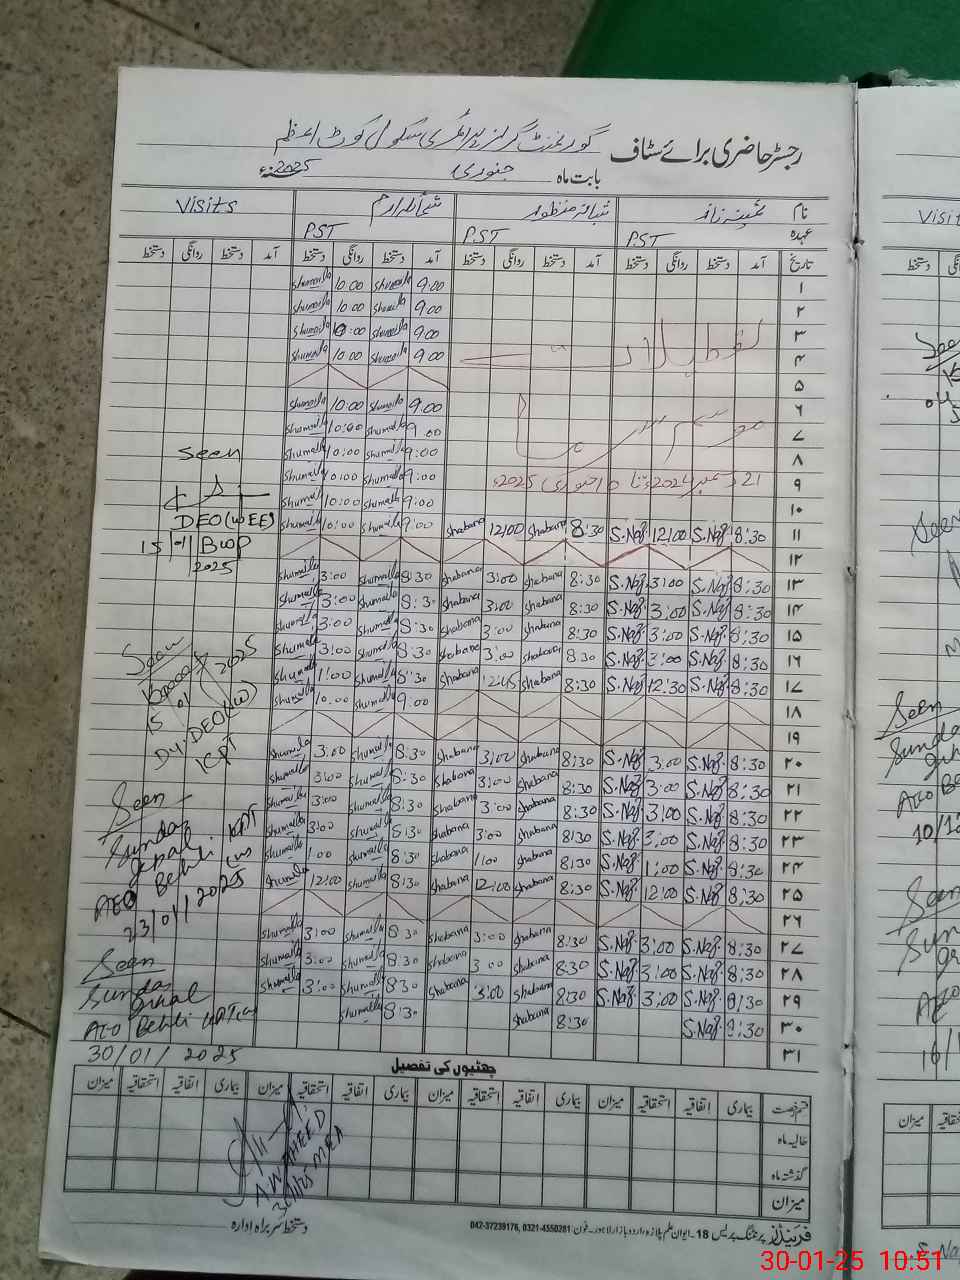 رجسٹر حاضری برائے سٹاف گورنمنٹ گرلز پرائمری سکول کوٹ اعظم
بابت ماہ جنوری 2025ء
نام ثمینہ ناز شبانہ منظور شمائلہ ارم Visits
عہدہ PST PST PST
تاریخ آمد دستخط روانگی دستخط آمد دستخط روانگی دستخط آمد دستخط روانگی دستخط آمد دستخط روانگی دستخط
۱ 9.00 Shumaila 10.00 Shumaila
۲ 9.00 Shumaila 10.00 Shumaila
۳ 9.00 Shumaila 10:00 Shumaila
۴ 9.00 Shumaila 10.00 Shumaila
۵
۶ 9.00 Shumaila 10:00 Shumaila
۷ 9.00 Shumaila 10:00 Shumaila
۸ 9:00 Shumaila 10:00 Shumaila
۹ 9:00 Shumaila 10:00 Shumaila
۱۰ 9:00 Shumaila 10:00 Shumaila
تعطیلات
موسم سرما
21 دسمبر 2024ء تا 10 جنوری 2025ء
۱۱ 8:30 S.Naz 12:00 S.Naz 8:30 Shabana 12:00 Shabana 9:00 Shumaila 10:00 Shumaila
۱۲
۱۳ 8:30 S.Naz 3:00 S.Naz 8:30 Shabana 3:00 Shabana 8:30 Shumaila 3:00 Shumaila
۱۴ 8:30 S.Naz 3:00 S.Naz 8:30 Shabana 3:00 Shabana 8:30 Shumaila 3:00 Shumaila
۱۵ 8:30 S.Naz 3:00 S.Naz 8:30 Shabana 3:00 Shabana 8:30 Shumaila 3:00 Shumaila
۱۶ 8:30 S.Naz 3:00 S.Naz 8:30 Shabana 3:00 Shabana 8:30 Shumaila 3:00 Shumaila
۱۷ 8:30 S.Naz 12:30 S.Naz 8:30 Shabana 12:45 Shabana 8:30 Shumaila 1:00 Shumaila
۱۸ 9.00 Shumaila 10.00 Shumaila
۱۹
۲۰ 8:30 S.Naz 3:00 S.Naz 8:30 Shabana 3:00 Shabana 8:30 Shumaila 3:00 Shumaila
۲۱ 8:30 S.Naz 3:00 S.Naz 8:30 Shabana 3:00 Shabana 8:30 Shumaila 3:00 Shumaila
۲۲ 8:30 S.Naz 3:00 S.Naz 8:30 Shabana 3:00 Shabana 8:30 Shumaila 3:00 Shumaila
۲۳ 8:30 S.Naz 3:00 S.Naz 8:30 Shabana 3:00 Shabana 8:30 Shumaila 3:00 Shumaila
۲۴ 8:30 S.Naz 1:00 S.Naz 8:30 Shabana 1:00 Shabana 8:30 Shumaila 1:00 Shumaila
۲۵ 8:30 S.Naz 12:00 S.Naz 8:30 Shabana 12:00 Shabana 8:30 Shumaila 12:00 Shumaila
۲۶
۲۷ 8:30 S.Naz 3:00 S.Naz 8:30 Shabana 3:00 Shabana 8:30 Shumaila 3:00 Shumaila
۲۸ 8:30 S.Naz 3:00 S.Naz 8:30 Shabana 3:00 Shabana 8:30 Shumaila 3:00 Shumaila
۲۹ 8:30 S.Naz 3:00 S.Naz 8:30 Shabana 3:00 Shabana 8:30 Shumaila 3:00 Shumaila
۳۰ 8:30 S.Naz 8:30 Shabana 8:30 Shumaila
۳۱
Seen
DEO(W EE)
BWP
15/01/2025
Seen
15 01 2025
Dy. DEO(W)
KPT
Seen
AEO Behli KPT (W)
23/01/2025
Seen
AEO Behli KPT(W)
30/01/2025
چھٹیوں کی تفصیل
قسم رخصت بیماری اتفاقیہ استحقاقیہ میزان بیماری اتفاقیہ استحقاقیہ میزان بیماری اتفاقیہ استحقاقیہ میزان بیماری اتفاقیہ استحقاقیہ میزان
حالیہ ماہ
گذشتہ ماہ
میزان
MEA
دستخط سربراہ ادارہ
فرینڈز پرنٹنگ پریس 18۔ایوان علم پلازہ، اردو بازار لاہور۔ فون: 0321-4550281, 042-37239178
Seen
Seen
Seen
AEO
10/1
Seen
AEO
16/1
میزان
30-01-25 10:51